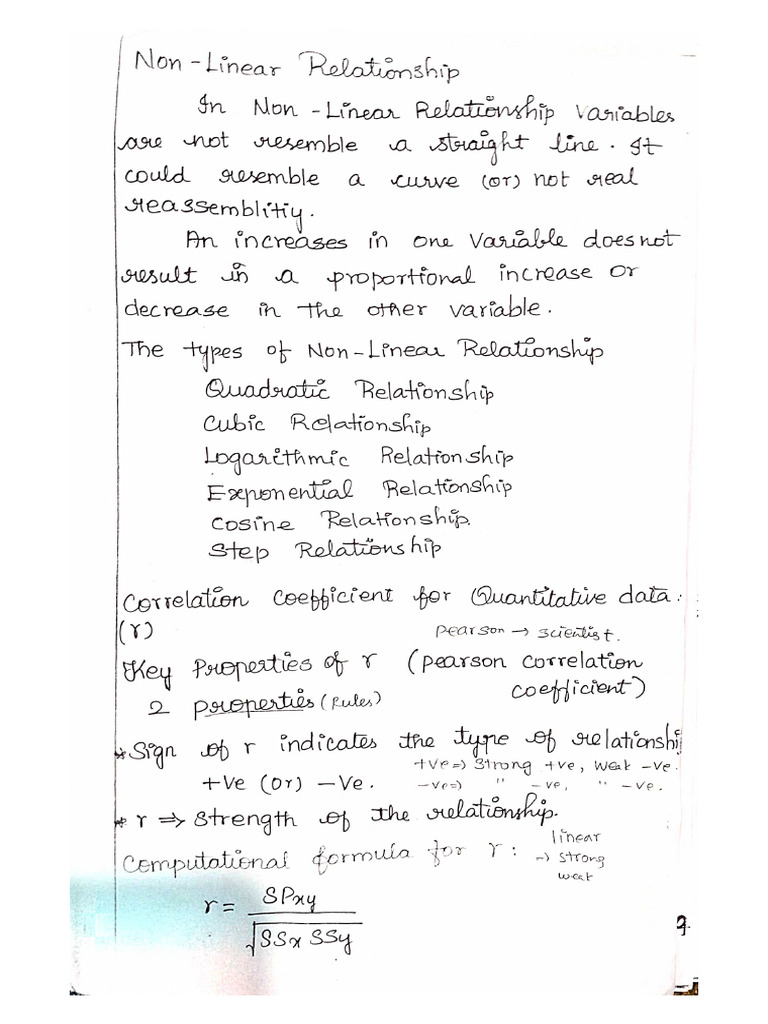 Non-Linear Relationship
In Non-Linear Relationship variables
are not resemble a straight line. It
could resemble a curve (or) not real
reassemblitiy.
An increases in one variable does not
result in a proportional increase or
decrease in the other variable.
The types of Non-Linear Relationship
Quadratic Relationship
Cubic Relationship
Logarithmic Relationship
Exponential Relationship
Cosine Relationship.
Step Relationship
Correlation Coefficient for Quantitative data.
(r)
pearson → scientist.
Key Properties of r (pearson correlation
coefficient)
2 properties (Rules)
* Sign of r indicates the type of relationshi
+ve => strong +ve, weak -ve.
+ve (or) -ve.
-ve => " -ve, " -ve.
* r => strength of the relationship.
linear
Computational formula for r:
-> strong
weak
r = SPxy / √SSx SSy
9.